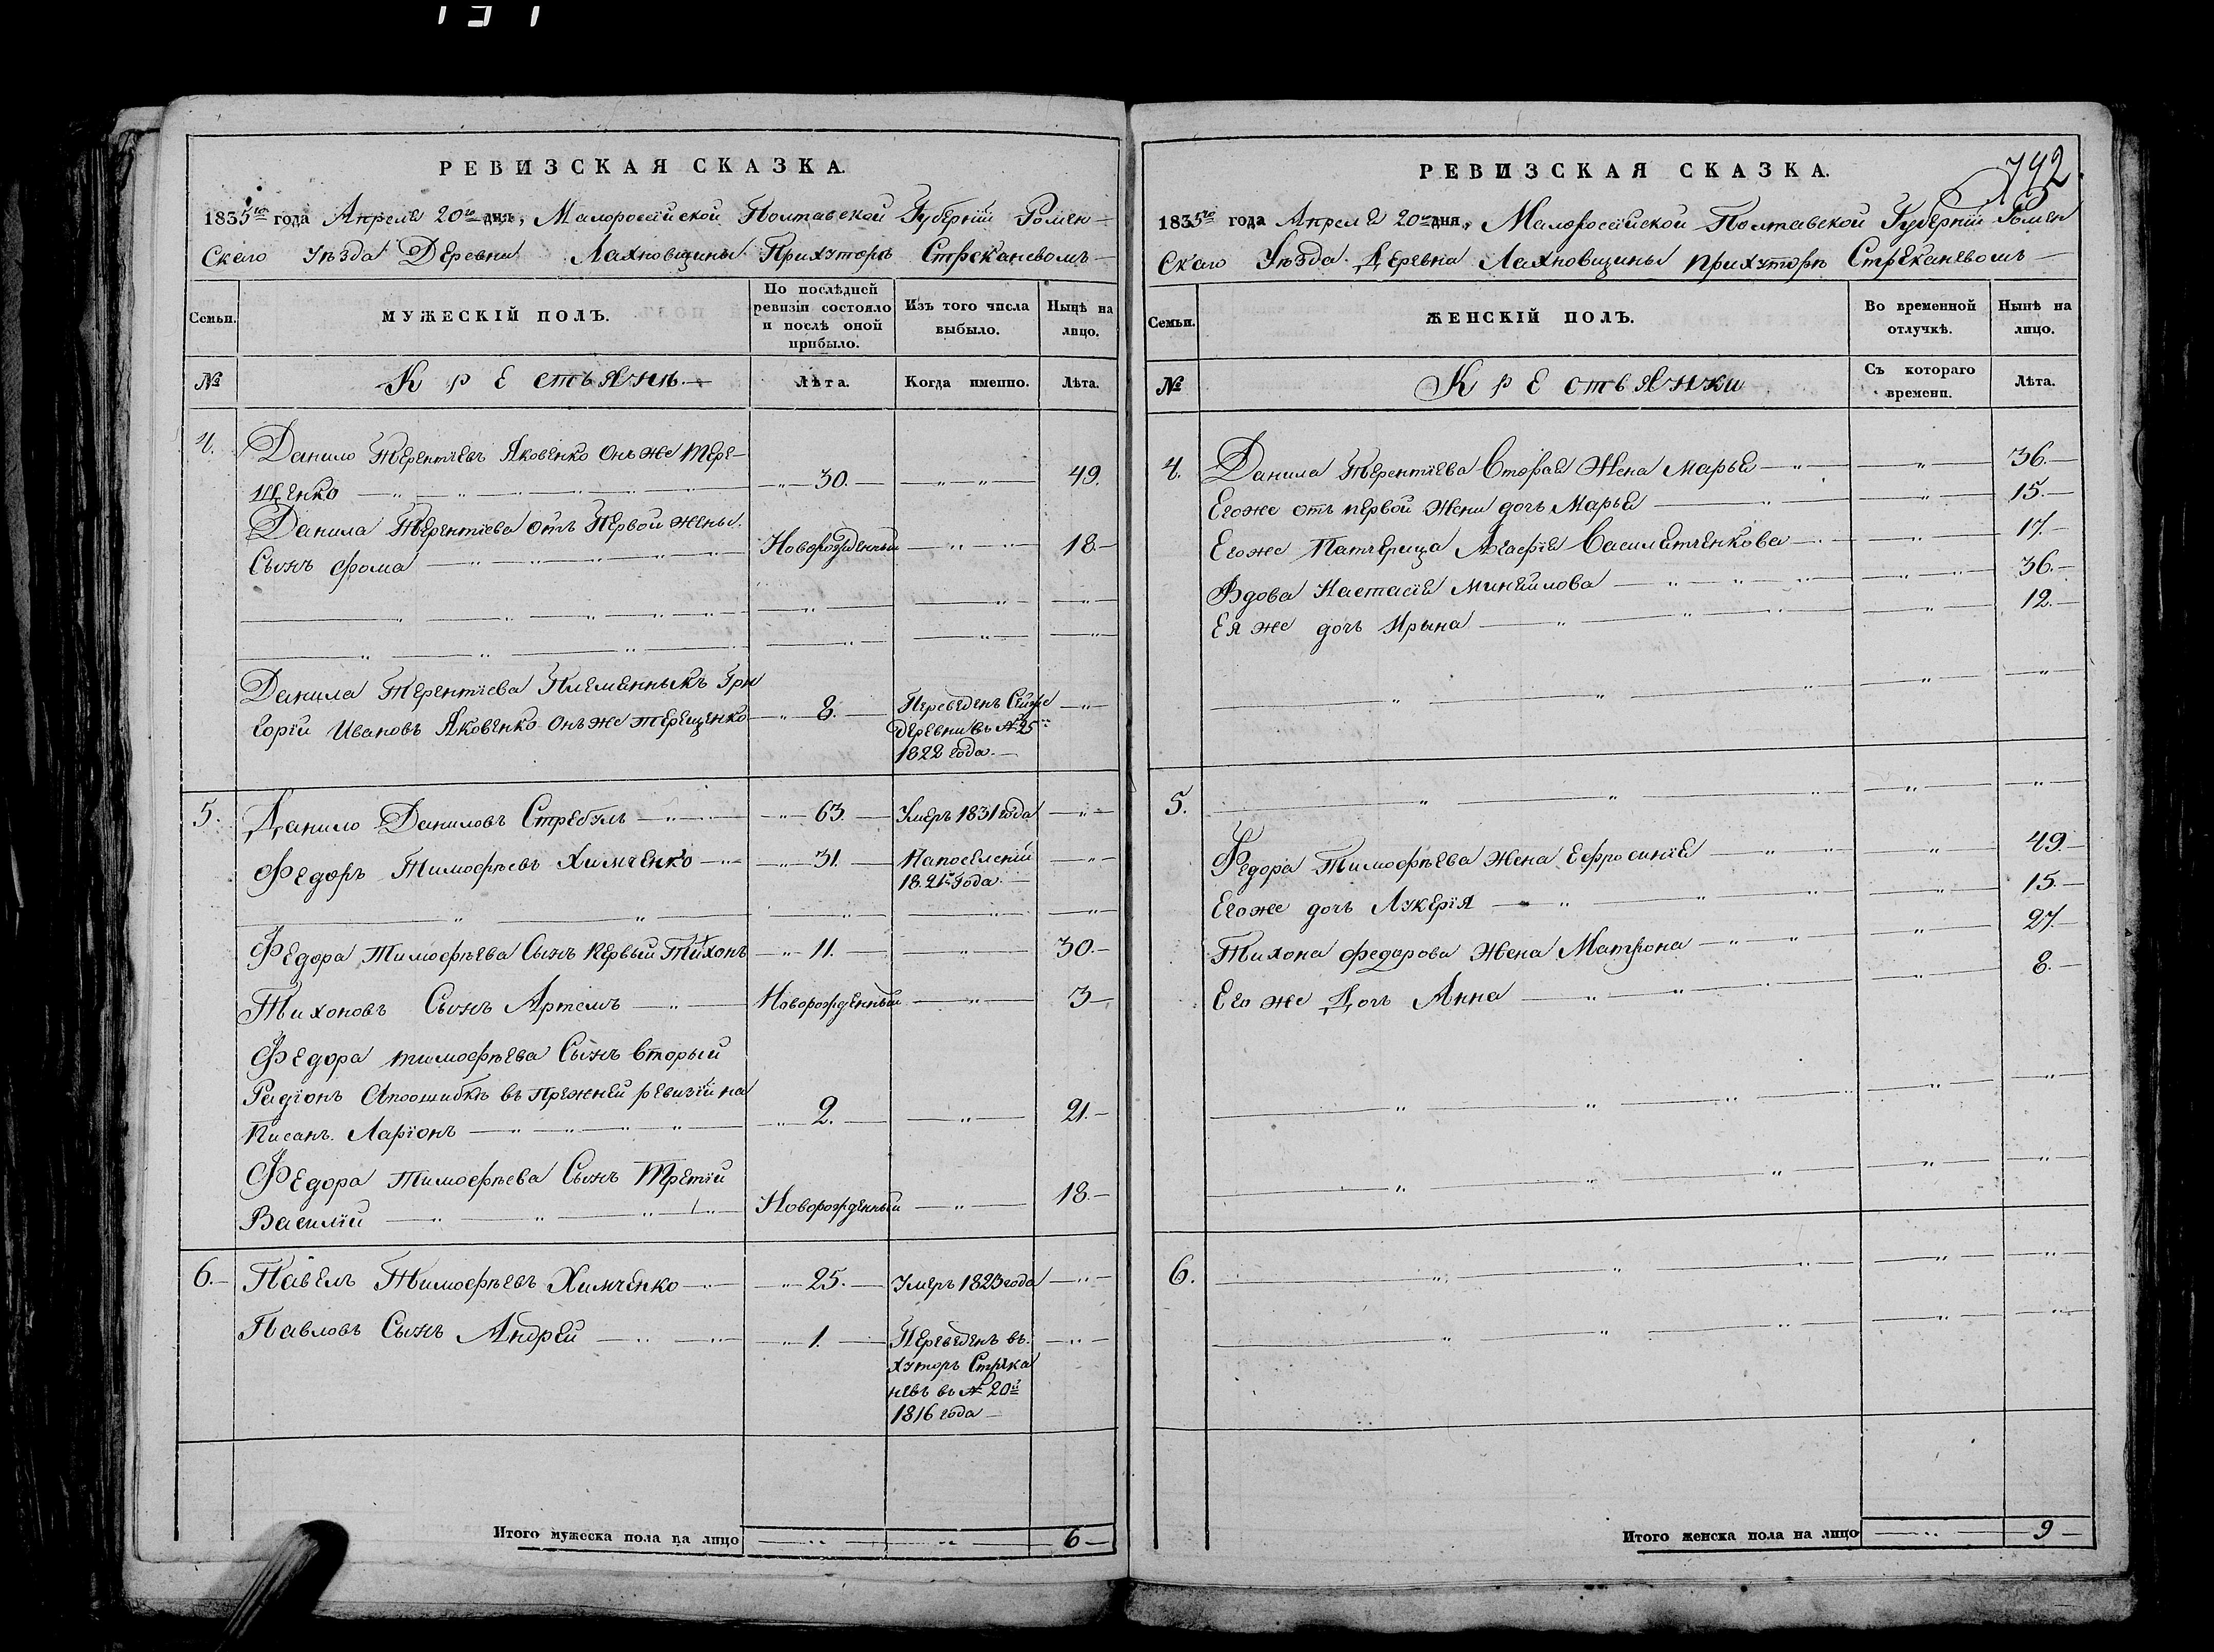 РЕВИЗСКАЯ СКАЗКА.
1835го года Апреля 20го дня, Малоросiйской Полтавской Губернiи Ромен-
скаго Уѣзда Деревни Лахновщины При хуторѣ Стреканевомъ
Семьи.
МУЖЕСКIЙ ПОЛЪ.
По послѣдней
ревизiи состояло
и послѣ оной
прибыло.
Изъ того числа
выбыло.
Нынѣ на
лицо.
№
Крестьянѣ.
Лѣта.
Когда именно.
Лѣта.
4.
Данило Терентiевъ Яковенко Онъ же Тере-
щенко 30. 49.
Данила Терентiева отъ Первой жены
Сынъ Фома Новорожденный 18
Данила Терентiева Племенныкъ Гри
горiй Ивановъ Яковенко Онъ же терещенко 8. Переведенъ Сейже
деревни въ № 25
1822 года.
5. Данило Даниловъ Стребуль 63. Умеръ 1831 года
Федоръ Тимофѣевъ Химченко 31. Напоселенiй
1821го года.
Федора Тимофѣева Сынъ Первый Тихонъ 11. 30.
Тихоновъ Сынъ Артемъ Новорожденный 3
Федора тимофѣева Сынъ Вторый
Радiонъ Апоошибкѣ въ Прежней ревизiи на
писанъ Ларiонъ 2. 21.
Федора тимофѣева Сынъ Третiй
Василiй Новорожденный 18.
6. Павелъ Тимофѣевъ Химченко 25. Умеръ 1823 года
Павловъ Сынъ Андрей 1. Переведенъ въ
хуторъ Стрека
невъ въ № 20й
1816 года
Итого мужеска пола на лицо 6
792.
РЕВИЗСКАЯ СКАЗКА.
1835го года Апреля 20го дня, Малоросiйской Полтавской Губернiи Ромен
скаго Уѣзда Деревни Лахновщины при хуторѣ Стреканевомъ
Семьи.
ЖЕНСКIЙ ПОЛЪ.
Во временной
отлучкѣ.
Нынѣ на
лицо.
№
Крестьянки
Съ котораго
времени.
Лѣта.
4. Данила Терентiева Вторая Жена Марья 36.
Егоже отъ первой Жени дочъ Марья 15.
Егоже Патчерица Агафiя Василетченкова 17.
Вдова Настасiя Михайлова 36.
Ея же дочъ Ирына 12.
5.
Федора Тимофѣева Жена Ефросинiя 49.
Егоже дочъ Лукерiя 15.
Тихона федорова Жена Матрона 27.
Его же Дочъ Анна 8.
6.
Итого женска пола на лицо 9